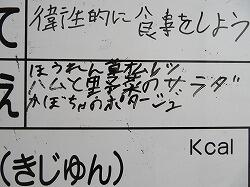 て 衛生的に食事をしよう
え ほうれん草オムレツ
ハムと野菜のサラダ
かぼちゃのポタージュ
Kcal
(きじゅん)